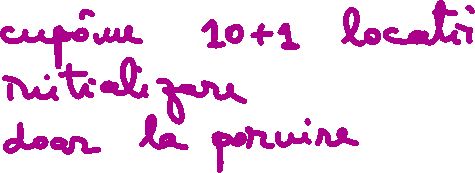 cupôme 10+1 locatii
initializare
doar la pornire